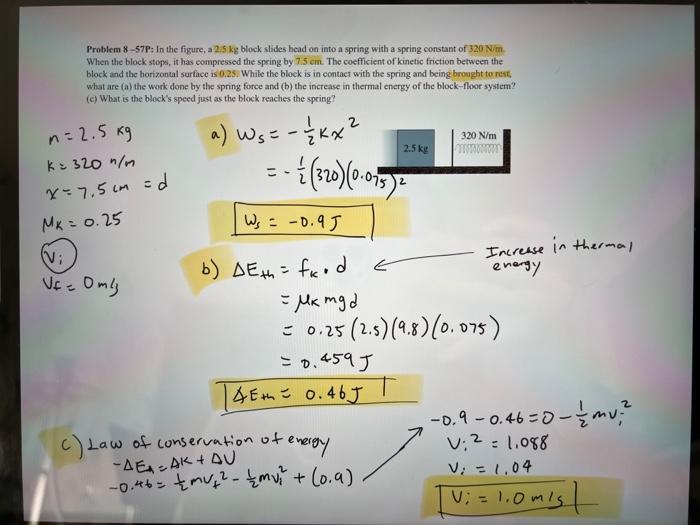 Problem 8–57P: In the figure, a 2.5 kg block slides head on into a spring with a spring constant of 320 N/m.
When the block stops, it has compressed the spring by 7.5 cm. The coefficient of kinetic friction between the
block and the horizontal surface is 0.25. While the block is in contact with the spring and being brought to rest,
what are (a) the work done by the spring force and (b) the increase in thermal energy of the block–floor system?
(c) What is the block's speed just as the block reaches the spring?
m = 2.5 kg
K = 320 n/m
x = 7.5 cm = d
μk = 0.25
Vi
Vf = 0 m/s
a) Ws = - 1/2 Kx²
= - 1/2 (320)(0.075)²
Ws = -0.9 J
2.5 kg
320 N/m
b) ΔEth = fk · d
Increase in thermal
energy
= μk mgd
= 0.25 (2.5)(9.8)(0.075)
= 0.459 J
ΔEth = 0.46 J
c) Law of conservation of energy
-ΔEth = ΔK + ΔU
-0.46 = 1/2 mvf² - 1/2 mvi² + (0.9)
-0.9 - 0.46 = 0 - 1/2 mvi²
Vi² = 1.088
Vi = 1.04
Vi = 1.0 m/s